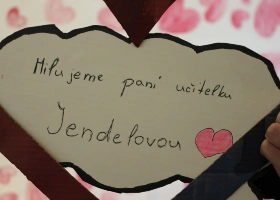 Milujeme paní učitelku
Jendelovou